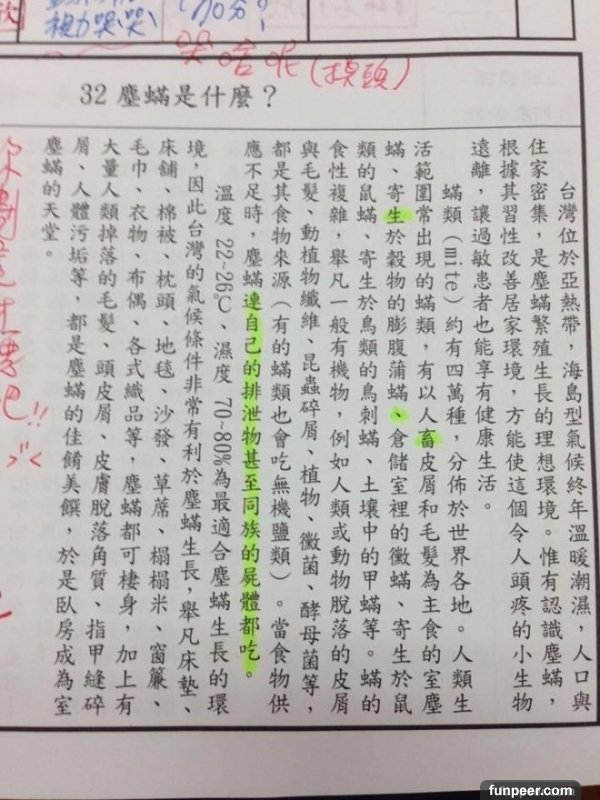 視力哭哭
70分?
哭啥呢(摸頭)
32 塵蟎是什麼？
台灣位於亞熱帶，海島型氣候終年溫暖潮濕，人口與
住家密集，是塵蟎繁殖生長的理想環境。惟有認識塵蟎，
根據其習性改善居家環境，方能使這個令人頭疼的小生物
遠離，讓過敏患者也能享有健康生活。
蟎類（mite）約有四萬種，分佈於世界各地。人類生
活範圍常出現的蟎類，有以人畜皮屑和毛髮為主食的室塵
蟎、寄生於穀物的膨腹蒲蟎、倉儲室裡的黴蟎、寄生於鼠
類的鼠蟎、寄生於鳥類的鳥刺蟎、土壤中的甲蟎等。蟎的
食性複雜，舉凡一般有機物，例如人類或動物脫落的皮屑
與毛髮、動植物纖維、昆蟲碎屑、植物、黴菌、酵母菌等，
都是其食物來源（有的蟎類也會吃無機鹽類）。當食物供
應不足時，塵蟎連自己的排泄物甚至同族的屍體都吃。
溫度 22~26℃、濕度 70~80%為最適合塵蟎生長的環
境，因此台灣的氣候條件非常有利於塵蟎生長，舉凡床墊、
床舖、棉被、枕頭、地毯、沙發、草蓆、榻榻米、窗簾、
毛巾、衣物、布偶、各式織品等，塵蟎都可棲身，加上有
大量人類掉落的毛髮、頭皮屑、皮膚脫落角質、指甲縫碎
屑、人體污垢等，都是塵蟎的佳餚美饌，於是臥房成為室
塵蟎的天堂。
funpeer.com